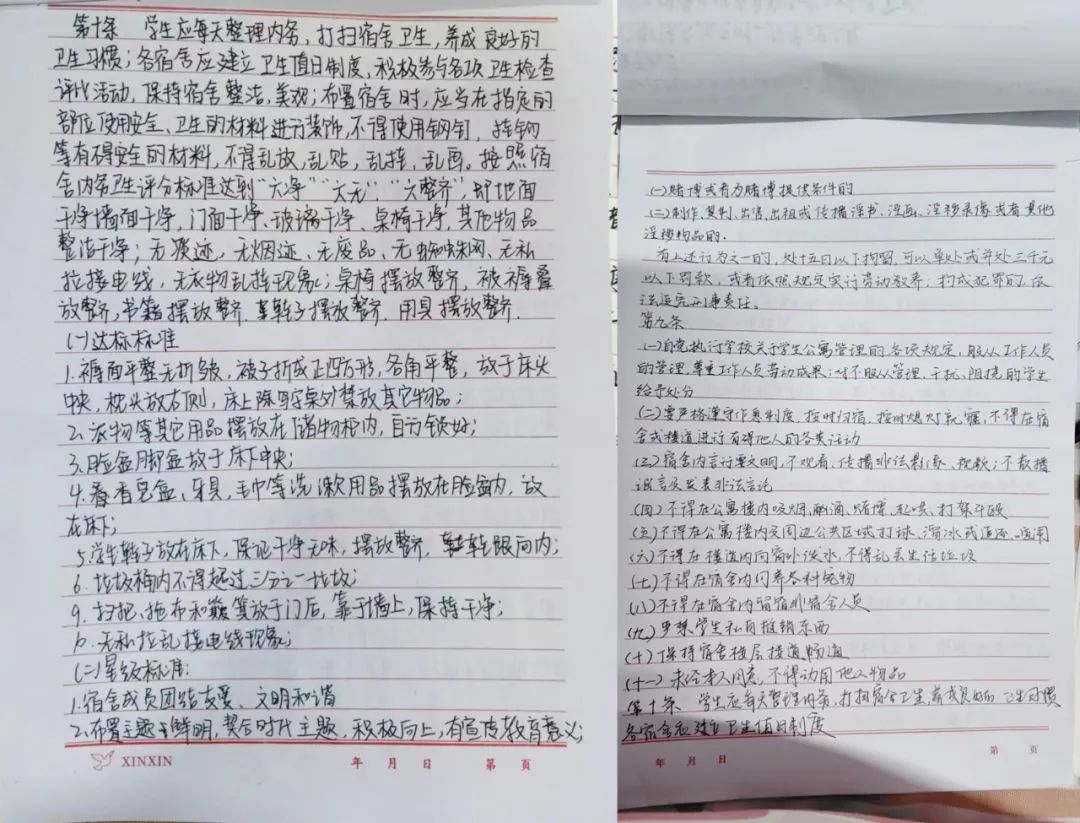 第十条 学生应每天整理内务，打扫宿舍卫生，养成良好的
卫生习惯；各宿舍应建立卫生值日制度，积极参与各项卫生检查
评比活动，保持宿舍整洁，美观；布置宿舍时，应当在指定的
部位使用安全、卫生的材料进行装饰，不得使用钢钉、挂钩
等有碍安全的材料，不得乱放，乱贴，乱挂，乱画。按照宿
舍内务卫生评分标准达到“六净”“六无”、“六整齐”，即地面
干净墙面干净，门面干净、玻璃干净、桌椅干净，其他物品
整洁干净；无痰迹、无烟迹、无废品、无蜘蛛网、无私
拉接电线，无衣物乱挂现象；桌椅摆放整齐，被褥叠
放整齐，书籍摆放整齐，鞋子摆放整齐，用具摆放整齐.
(一)达标标准
1.褥面平整无折皱，被子折成正四方形，各角平整，放于床头
中央，枕头放右侧，床上除写字桌外禁放其它物品；
2.衣物等其它用品摆放在储物柜内，自行锁好；
3.脸盆脚盆放于床下中央；
4.香皂盒、牙具，毛巾等洗漱用品摆放在脸盆内，放
在床下；
5.学生鞋子放在床下，保证干净无味，摆放整齐，鞋跟向内；
6.垃圾桶内不得超过三分之一垃圾；
9.扫把、拖布和簸箕放于门后，靠于墙上，保持干净；
10.无私拉乱接电线现象；
(二)星级标准：
1.宿舍成员团结友爱、文明和谐
2.布置主题鲜明，契合时代主题，积极向上，有宣传教育意义；
XINXIN 年 月 日 第 页
(一)赌博或者为赌博提供条件的
(二)制作、复制、出售、出租或传播淫书、淫画、淫秽录像或者其他
淫秽物品的.
有上述行为之一的，处十五日以下拘留，可以单处或并处三千元
以下罚款，或者依照规定实行劳动教养；构成犯罪的，依
法追究刑事责任。
第九条
(一)自觉执行学校关于学生公寓管理的各项规定，服从工作人员
的管理，尊重工作人员劳动成果；对不服从管理、干扰、阻挠的学生
给予处分
(二)要严格遵守作息制度，按时归宿，按时熄灯就寝，不得在宿
舍或楼道进行有碍他人的各类活动
(三)宿舍内言行要文明，不观看、传播非法影像、视频；不散播
谣言或发表非法言论
(四)不得在公寓楼内吸烟，酗酒、赌博、起哄、打架斗殴
(五)不得在公寓楼内及周边公共区域打球、滑冰或追逐、打闹
(六)不得在楼道内向窗外泼水，不得乱丢生活垃圾
(七)不得在宿舍内饲养各种宠物
(八)不得在宿舍内留宿非宿舍人员
(九)严禁学生私自推销东西
(十)保持宿舍楼层楼道畅通
(十一)未经本人同意，不得动用他人物品
第十条 学生应每天整理内务，打扫宿舍卫生，养成良好的卫生习惯
各宿舍应建立卫生值日制度
年 月 日 第 页